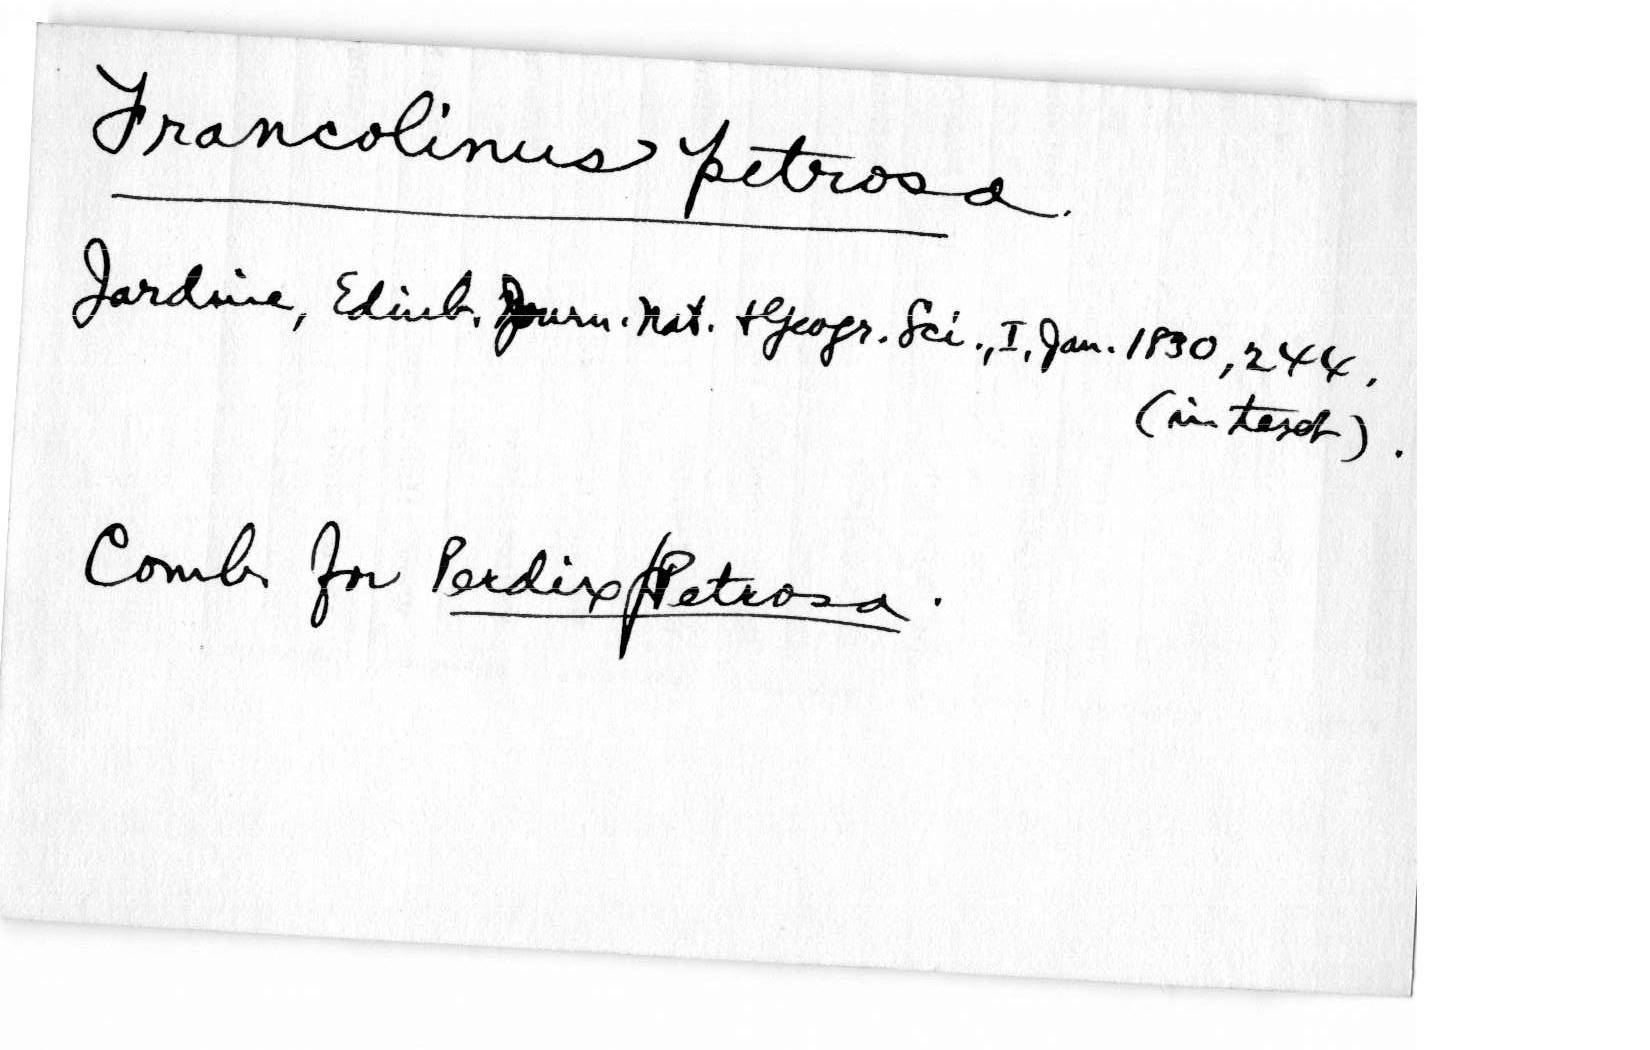 Francolinus petrosa.
Jardine, Edinb. Journ. Nat. + Geogr. Sci., I, Jan. 1830, 244,
(in text).
Comb. for Perdix Petrosa.